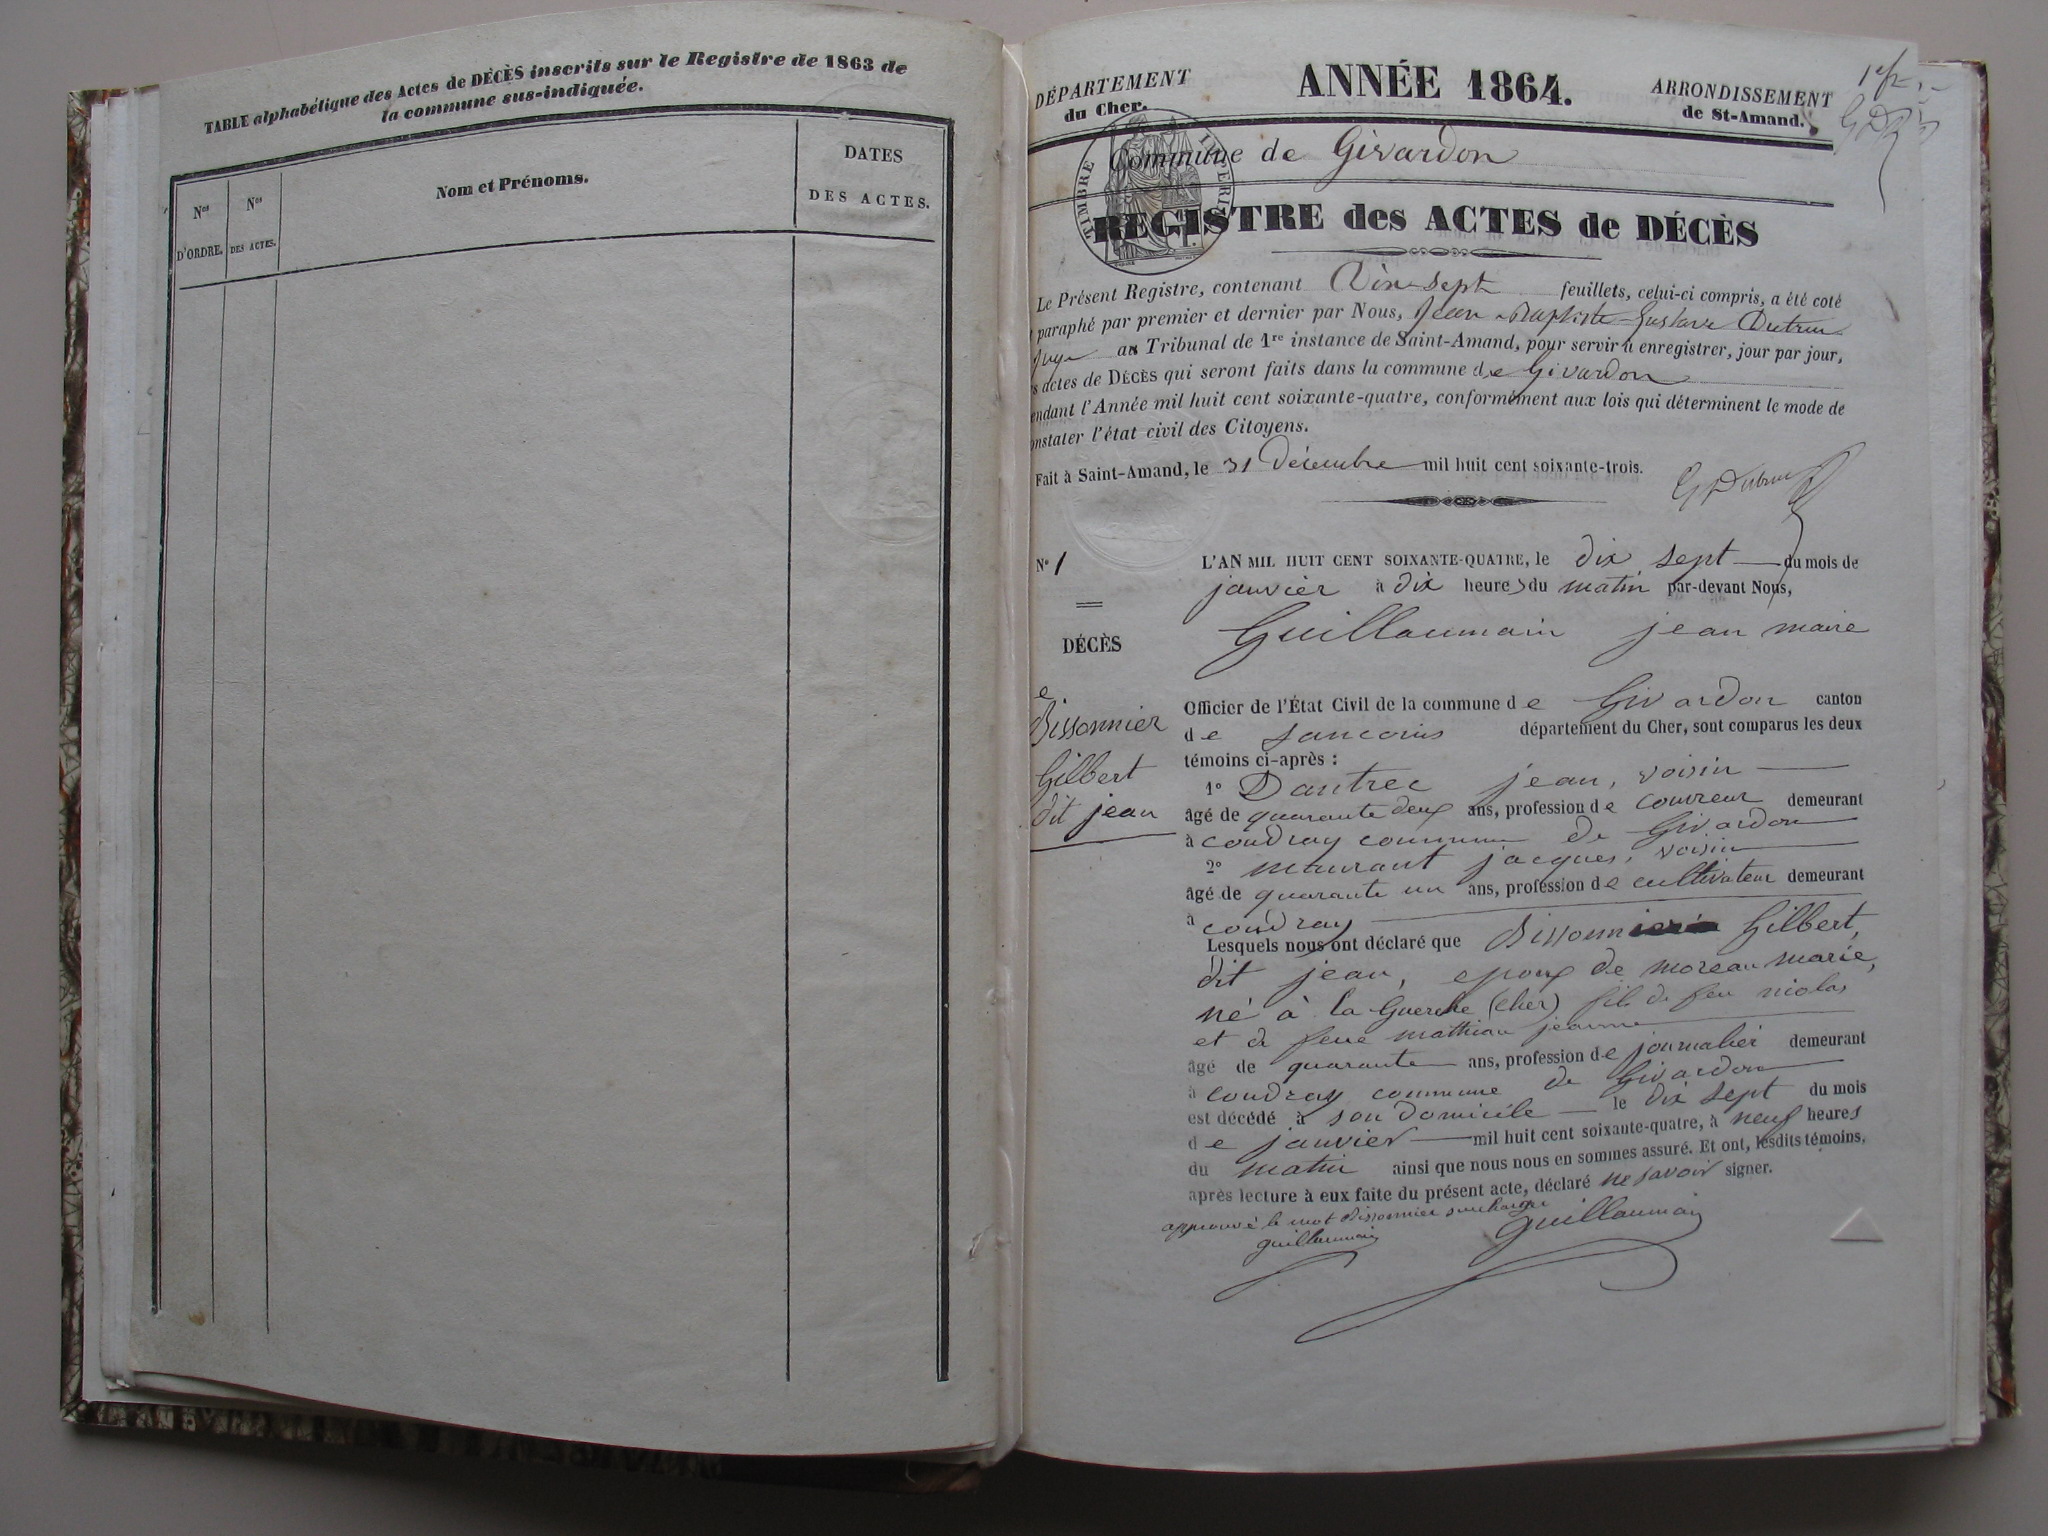 TABLE alphabétique des Actes de DÉCÈS inscrits sur le Registre de 1863 de
la commune sus-indiquée.
Nos D'ORDRE.
Nos DES ACTES.
Nom et Prénoms.
DATES
DES ACTES.
DÉPARTEMENT
du Cher.
ANNÉE 1864.
ARRONDISSEMENT
de St-Amand.
TIMBRE IMPERIAL
Commune de Givardon
REGISTRE des ACTES de DÉCÈS
Le Présent Registre, contenant Dix-sept feuillets, celui-ci compris, a été coté
paraphé par premier et dernier par Nous, Jean-Baptiste Gustave
Juge au Tribunal de 1re instance de Saint-Amand, pour servir à enregistrer, jour par jour,
s actes de DÉCÈS qui seront faits dans la commune de Givardon
endant l'Année mil huit cent soixante-quatre, conformément aux lois qui déterminent le mode de
onstater l'état civil des Citoyens.
Fait à Saint-Amand, le 31 Décembre mil huit cent soixante-trois.
No 1
L'AN MIL HUIT CENT SOIXANTE-QUATRE, le dix sept du mois de
janvier à dix heures du matin par-devant Nous,
Guillaumain jean maire
DÉCÈS
Officier de l'État Civil de la commune de Givardon canton
de Sancoins département du Cher, sont comparus les deux
témoins ci-après :
Bissonnier
Gilbert
dit jean
1o Dautrec jean, voisin
âgé de quarante deux ans, profession de couvreur demeurant
à coudray commune de Givardon
2o maurant jacques, voisin
âgé de quarante un ans, profession de cultivateur demeurant
à coudray
Lesquels nous ont déclaré que Bissonnier Gilbert,
dit jean, epoux de moreau marie,
né à la Guerche (cher) fils de feu niolas
et de feue mathiau jeanne
âgé de quarante ans, profession de journalier demeurant
à coudray commune de Givardon
est décédé à son domicile le dix sept du mois
de janvier mil huit cent soixante-quatre, à neuf heures
du matin ainsi que nous nous en sommes assuré. Et ont, lesdits témoins,
après lecture à eux faite du présent acte, déclaré ne savoir signer.
approuvé le mot Bissonnier surchargé
guillaumain
guillaumain